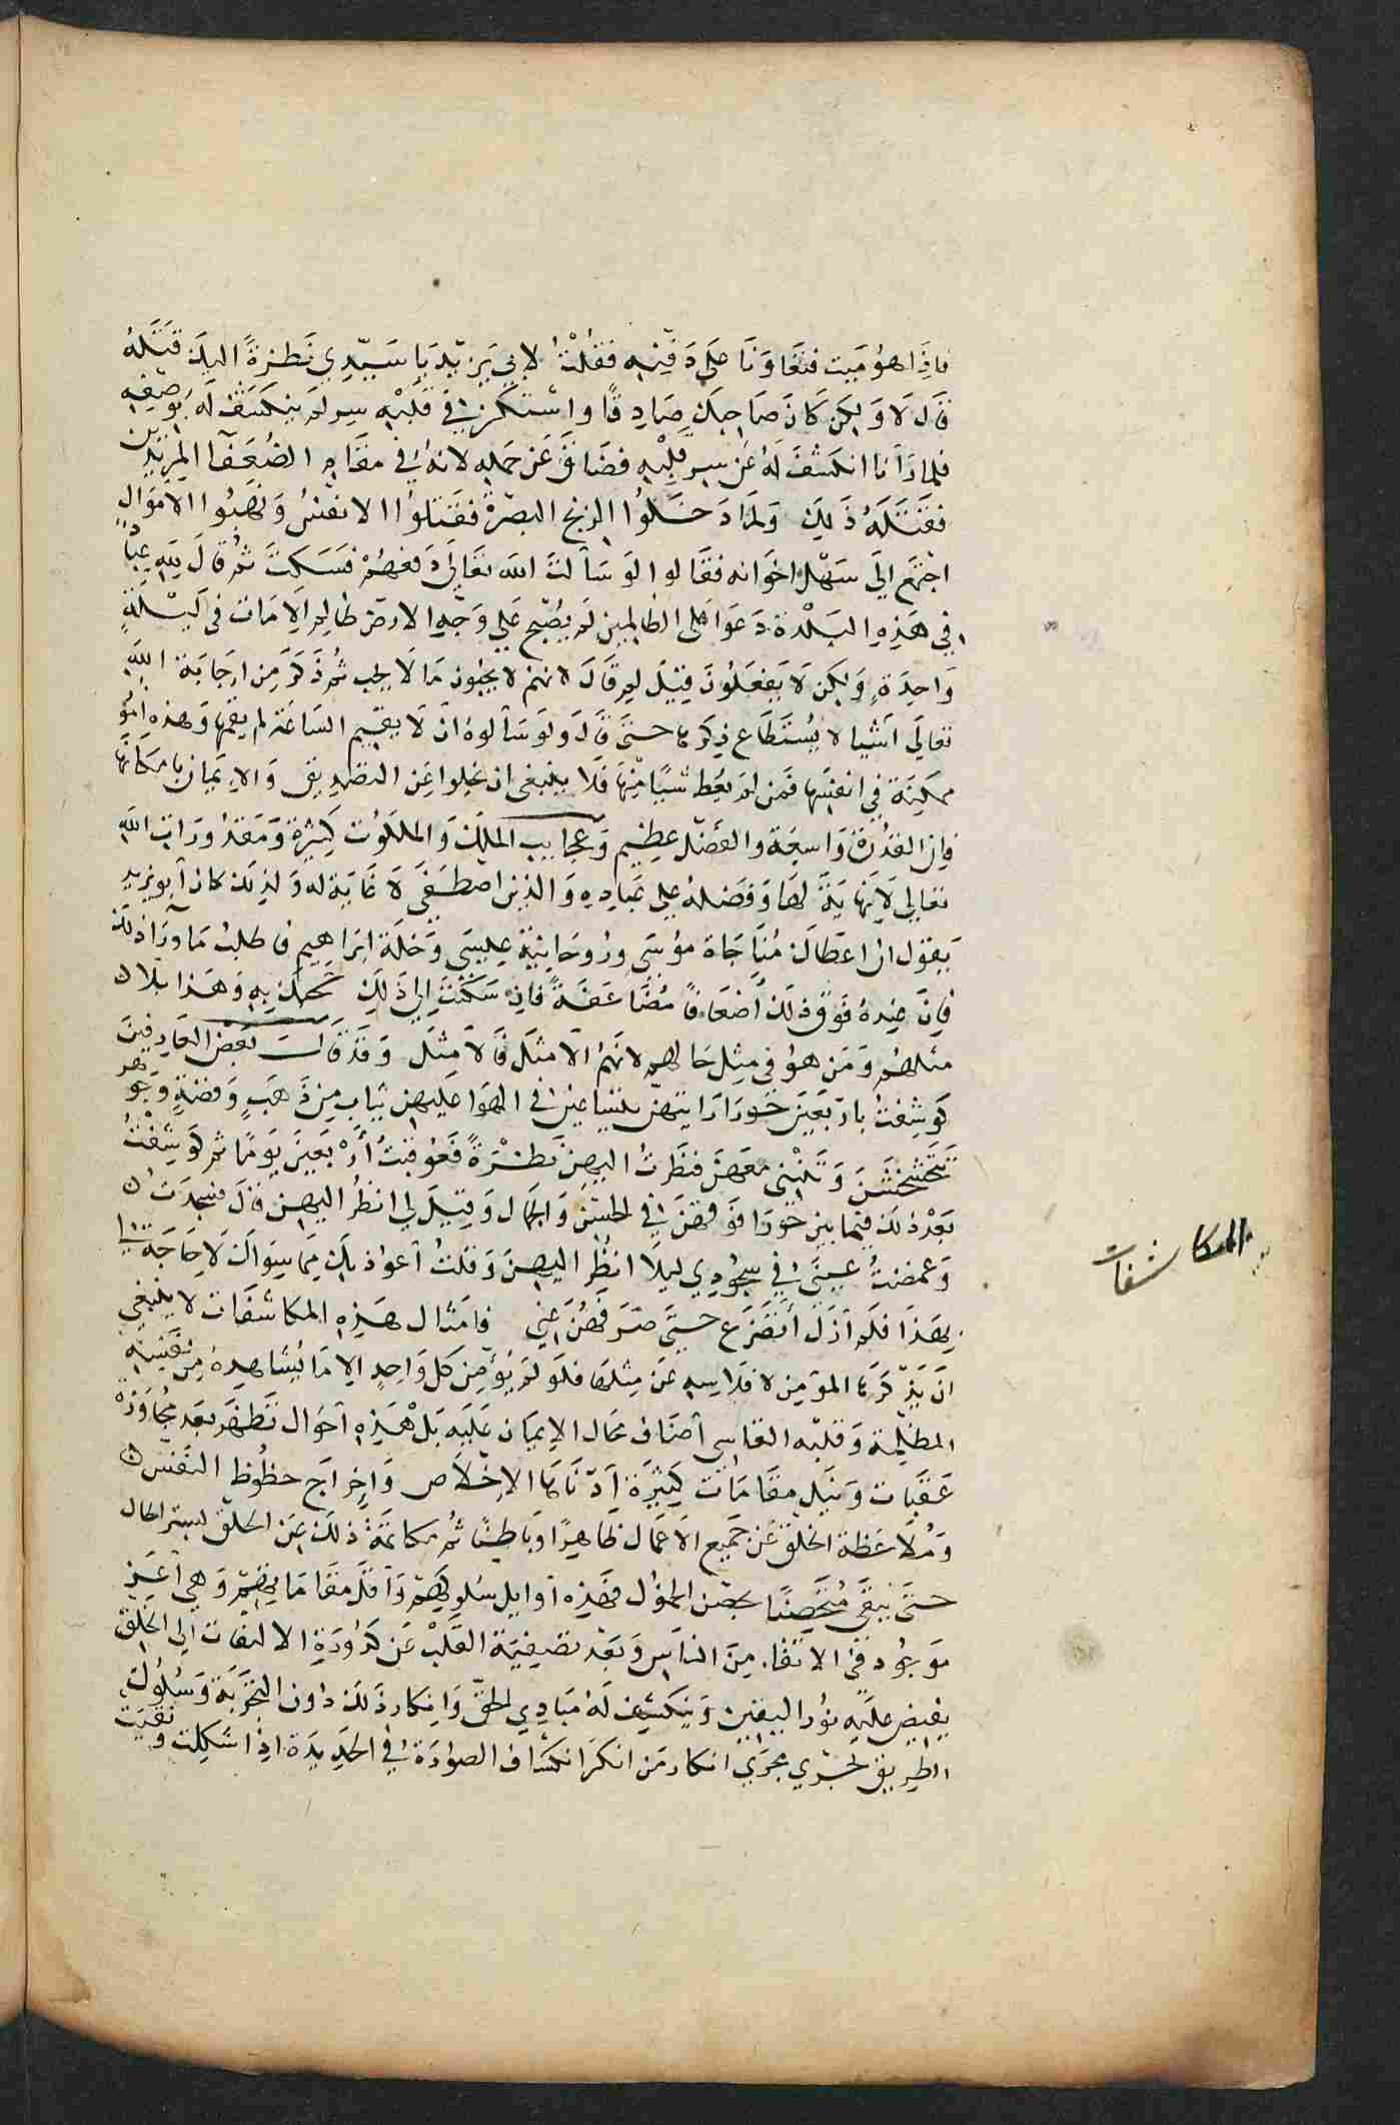 فاذا هو ميت فتعاونا على دفنه فقلت لابي يزيد يا سيدي نظرة اليك قتله
قال لا ولكن كان صاحبك صادقا واستكن في قلبه سر لم ينكشف له بوصفه
فلما راَنا انكشف له عن سر قلبه فضاق عن حمله لانه في مقام الضعفآ المريدين
فقتله ذلك ولما دخلوا الزنج البصرة فقتلوا الانفس ونهبوا الاموال
اجتمع الى سهل اخوانه فقالوا لو سالت الله تعالى دفعهم فسكت ثم قال لله عبادٌ
في هذه البلدة دعوا على الظالمين لم يصبح على وجه الارض ظالم الا مات في ليلة
واحدة ولكن لا يفعلون قيل لم قال لانهم لا يحبون ما لا يحب ثم ذكر من اجابة الله
تعالى اشيا لا يستطاع ذكرها حتى قال ولو سالوه ان لا يقيم الساعة لم يقمها وهذه امور
ممكنة في انفسها فمن لم يعط شيا منها فلا ينبغي ان يخلوا عن التصديق والايمان بامكانها
فان القدرة واسعة والفضل عظيم وعجايب الملك والملكوت كثيرة ومقدورات الله
تعالى لا نهاية لها وفضله على عباده والذين اصطفى لا غاية له ولذلك كان ابو يزيد
يقول ان اعطاك مناجاة موسى وروحانية عيسى وخلة ابراهيم فاطلب ما ورآ ذلك
فان عنده فوق ذلك اضعافا مضاعفة فان سكنت الى ذلك حجبك به وهذا بلا
مثلهم ومن هو في مثل حالهم لانهم الامثل فالامثل وقد قال بعض العارفين
كوشفت باربعين حورا رايتهن يتساعين في الهوا عليهن ثياب من ذهب وفضة وجوهر
تتخشخش وتنثنى معهن فنظرت اليهن نظرة فعوقبت اربعين يوما ثم كوشفت
بعد ذلك فيما بين حورا فوقهن في الحسن والجمال وقيل لي انظر اليهن قال فسجدت
وغمضت عيني في سجودي ليلا انظر اليهن وقلت اعوذ بك مما سواك لا حاجة لي
بهذا فلم ازل اتضرع حتى صرفهن عني فامثال هذه المكاشفات لا ينبغي
ان يذكرها المومن لافلاسه عن مثلها فلو لم يؤمن كل واحد الا ما يشاهده من نفسه
المظلمة وقلبه القاسي لضاق مجال الايمان عليه بل هذه احوال تظهر بعد مجاوزة
عقبات ونيل مقامات كثيرة ادناها الاخلاص واخراج حظوظ النفس
وملاحظة الخلق عن جميع الاعمال ظاهرا وباطنا ثم مكاتمة ذلك عن الخلق لستر الحال
حتى يبقى متحصنا بحصن الخمول فهذه اوايل سلوكهم واقل مقاماتهم وهي اعز
موجود في الاتقا. من الناس وبعد تصفية القلب عن كدورة الالتفات الى الخلق
يفيض عليه نور اليقين وينكشف له مبادي الحق وانكار ذلك دون التجربة وسلوك
الطريق يجري مجرى انكار من انكر انكشاف الصورة في الحديدة اذا شكلت ونقيت
المكاشفات